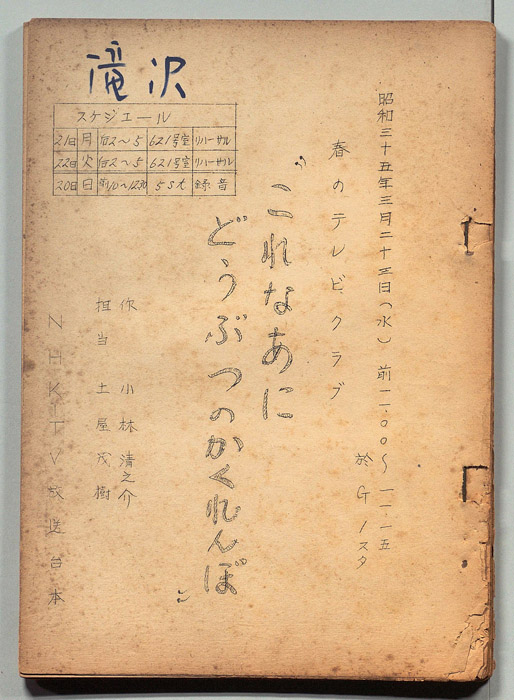 滝沢
スケジュール
21日 月 后2～5 621号室 リハーサル
22日 火 后2～5 621号室 リハーサル
20日 日 10～12 5st 録音
昭和三十五年三月二十三日(水) 前一一.〇〇～一一.一五
於G1スタ
春のテレビクラブ
"これなあに
どうぶつのかくれんぼ"
作 小林清之介
担当 土屋茂樹
NHKTV放送台本